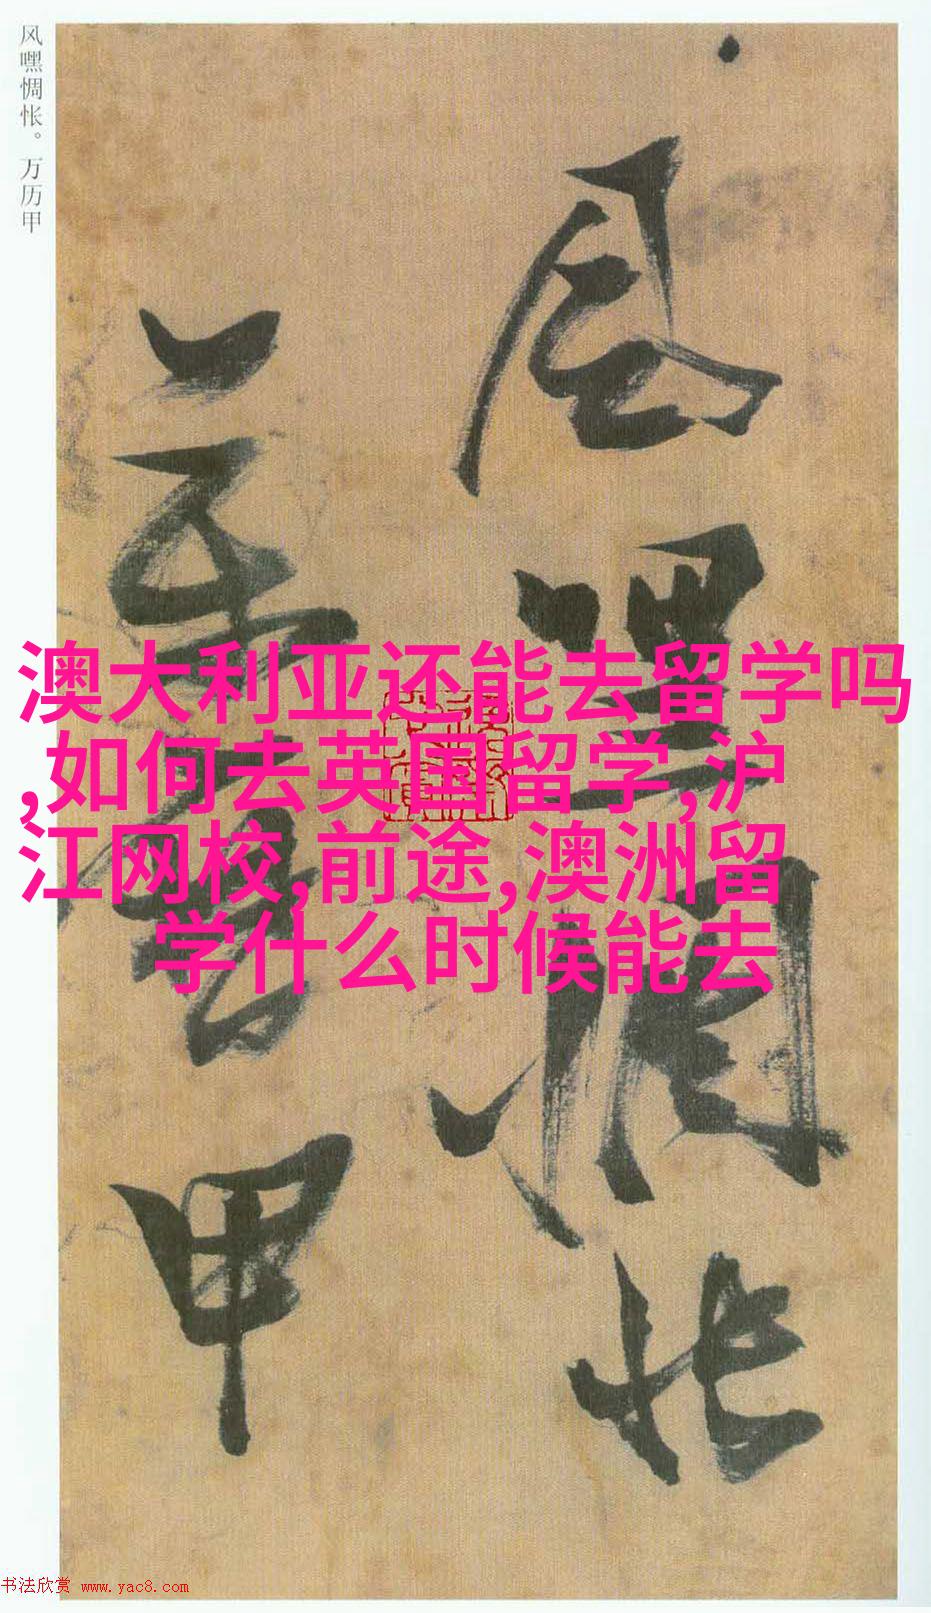 风嘿惆怅。万历甲
风嘿惆怅
万历甲
澳大利亚还能去留学吗
,如何去英国留学,沪
江网校,前途,澳洲留
学什么时候能去
书法欣赏 www.yac8.com